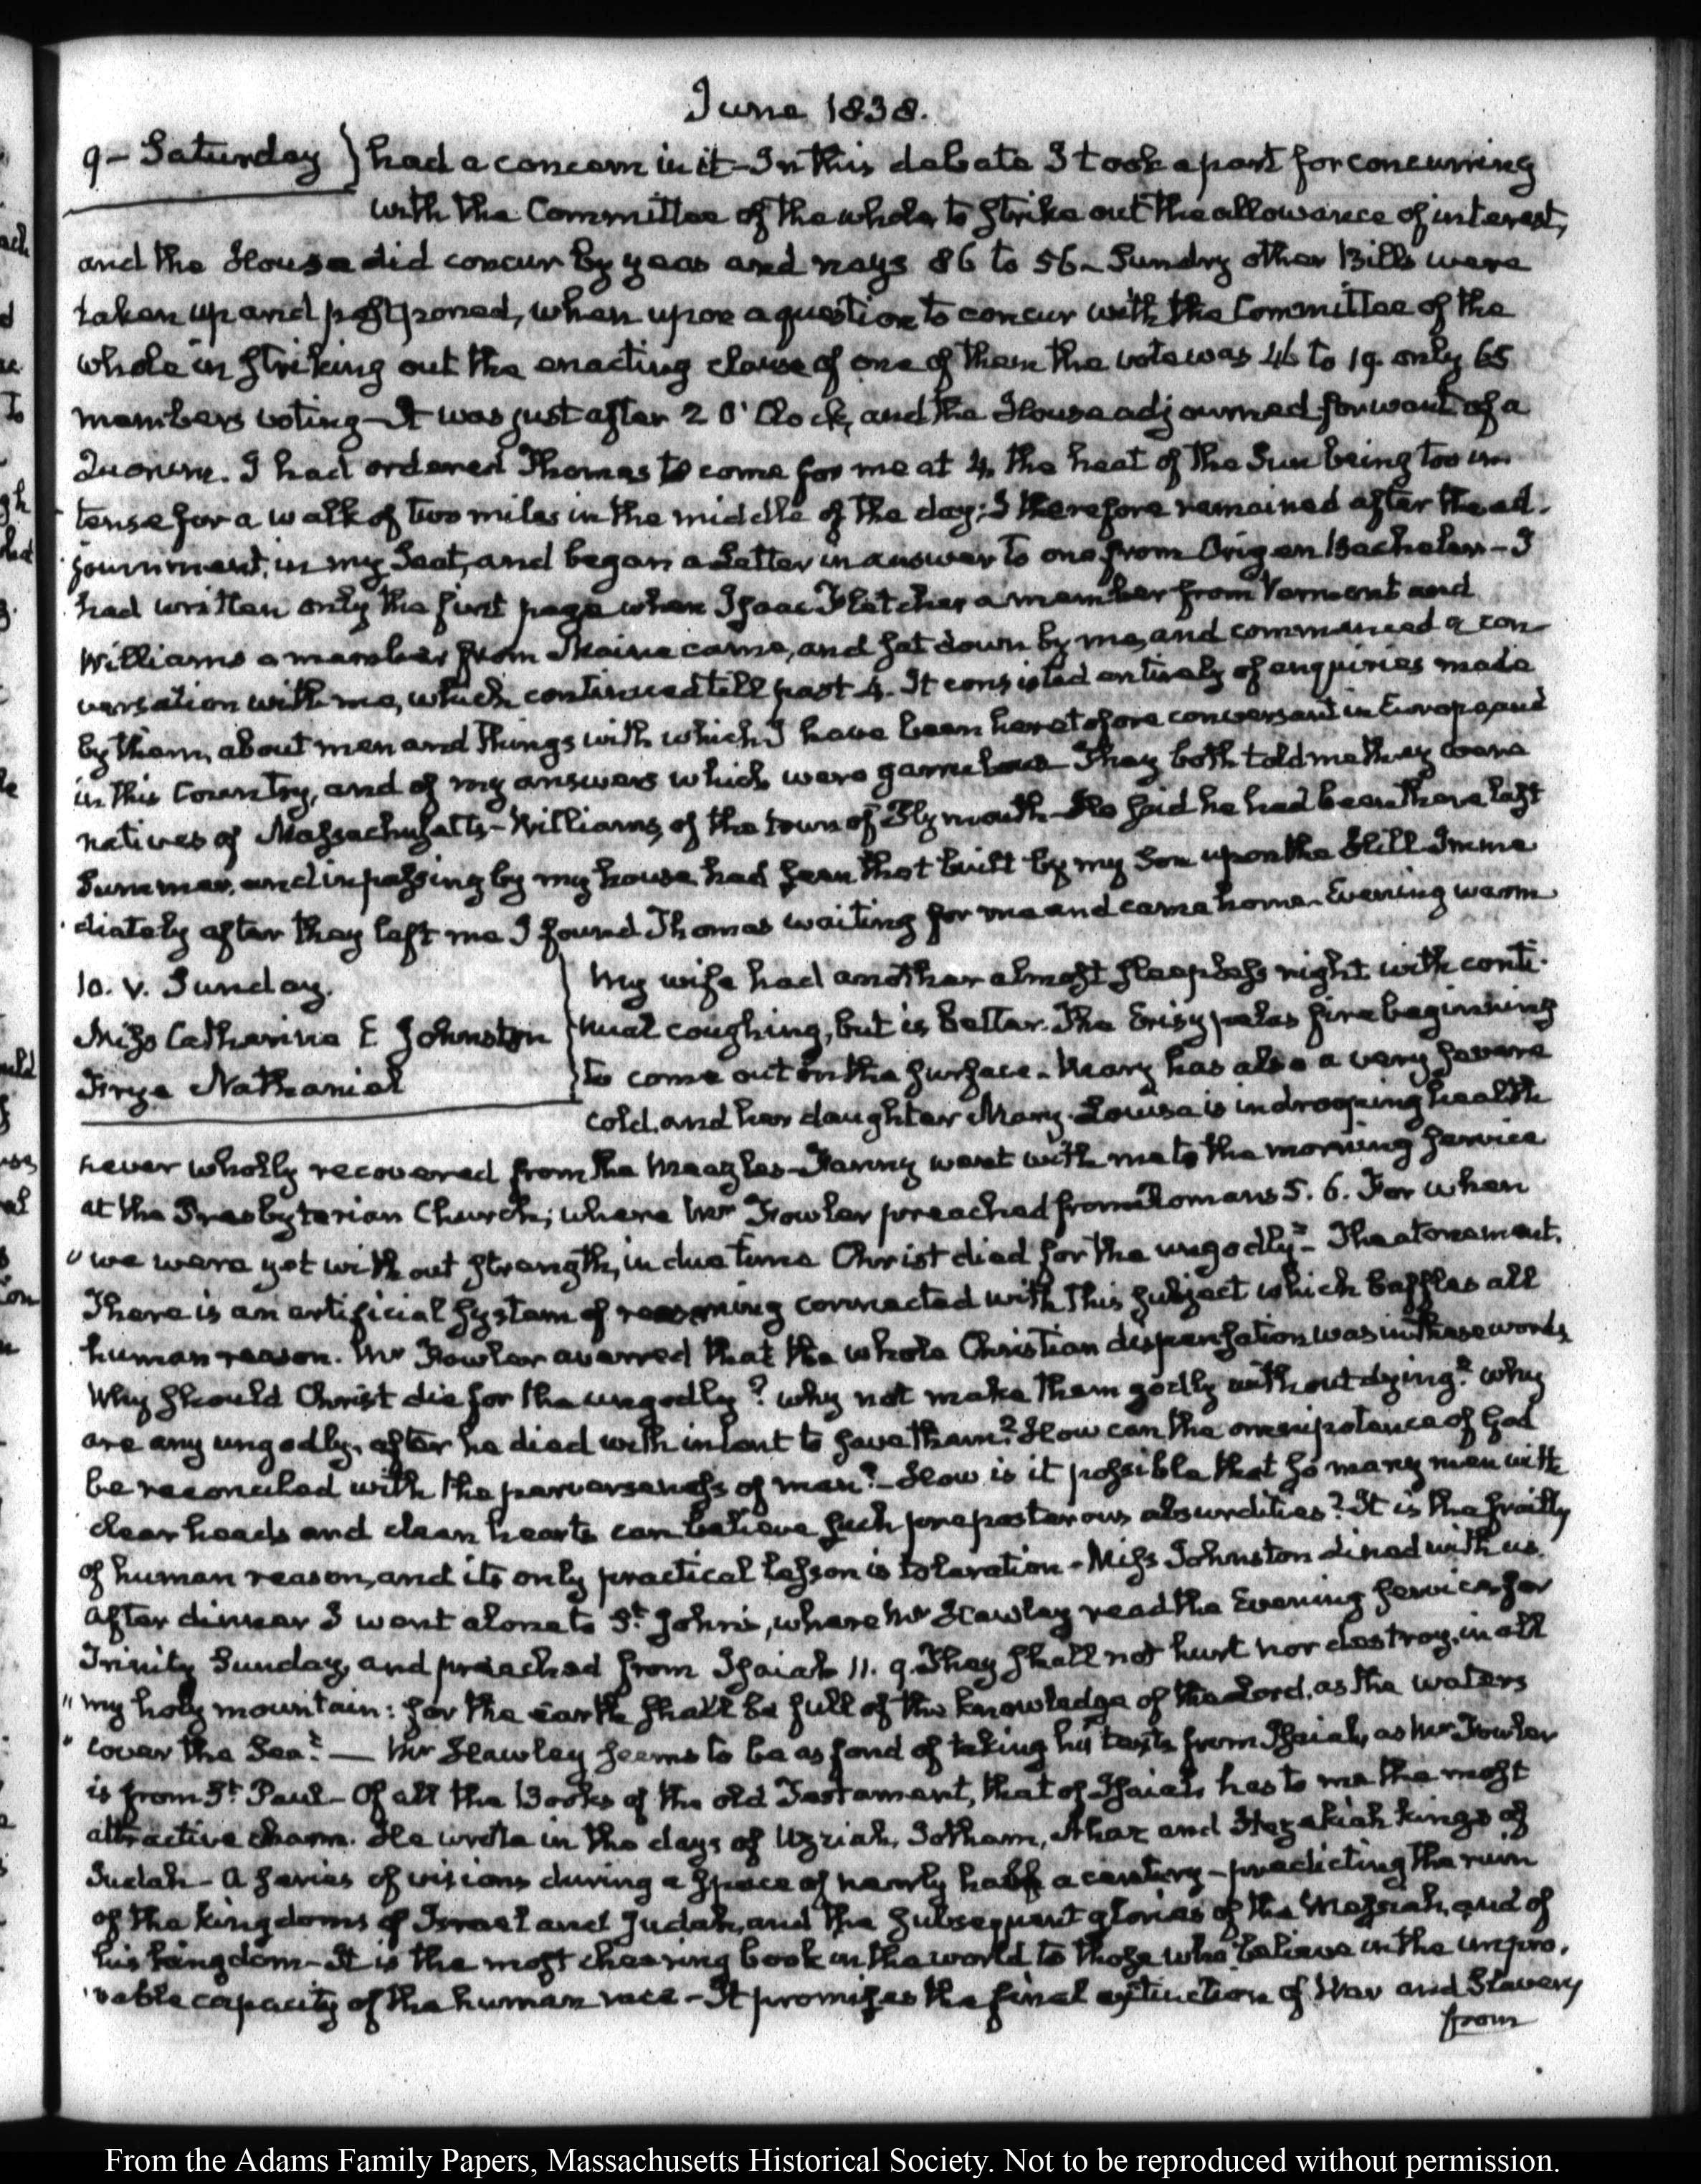 June 1838.
9 – Saturday } had a concern in it – In this debate I took a part for concurring
with the Committee of the whole to strike out the allowance of interest,
and the House did concur by yeas and nays 86 to 56 – Sundry other Bills were
taken up and postponed, when upon a question to concur with the Committee of the
whole in striking out the enacting clause of one of them the vote was 46 to 19. only 65
members voting – It was just after 2 O'Clock, and the House adjourned for want of a
Quorum. I had ordered Thomas to come for me at 4, the heat of the Sun being too in
tense for a walk of two miles in the middle of the day; I therefore remained after the ad-
journment, in my Seat, and began a Letter in answer to one from Origen Bacheler – I
had written only the first page when Isaac Fletcher a member from Vermont and
Williams a member from Maine came, and sat down by me, and commenced a con-
versation with me, which continued till past 4. It consisted entirely of enquiries made
by them, about men and things with which I have been heretofore conversant in Europe, and
in this Country, and of my answers which were garrulous – They both told me they were
natives of Massachusetts – Williams, of the town of Plymouth – He said he had been there last
Summer, and in passing by my house had seen that built by my Son upon the Hill – Imme
diately after they left me I found Thomas waiting for me and came home – Evening warm
10. V. Sunday. } My wife had another almost sleepless night with conti-
Miss Catharine E Johnston } nual coughing, but is better. The Erisypelas fire beginning
Frye Nathaniel } to come out on the surface – Mary has also a very severe
cold, and her daughter Mary-Louisa is in drooping health
never wholly recovered from the Meazles – Fanny went with me to the morning service
at the Presbyterian Church; where Mr Fowler preached from Romans 5. 6. For when
" we were yet without strength, in due time Christ died for the ungodly" – The atonement.
There is an artificial system of reasoning connected with this subject which baffles all
human reason. Mr Fowler averred that the whole Christian dispensation was in these words
Why should Christ die for the ungodly? why not make them godly without dying? why
are any ungodly, after he died with intent to save them? How can the omnipotence of God
be reconciled with the perverseness of man? – How is it possible that so many men with
clear heads and clean hearts can believe such preposterous absurdities? It is the frailty
of human reason, and its only practical lesson is toleration – Miss Johnston dined with us.
After dinner I went alone to St. John's, where Mr Hawley read the Evening service for
Trinity Sunday, and preached from Isaiah 11. 9. They shall not hurt nor destroy, in all
" my holy mountain: for the earth shall be full of the knowledge of the Lord, as the waters
" cover the Sea" — Mr Hawley seems to be as fond of taking his texts from Isaiah, as Mr Fowler
is from St. Paul – Of all the Books of the old Testament, that of Isaiah has to me the most
attractive charm. He wrote in the days of Uzziah, Jotham, Ahaz and Hezekiah kings of
Judah – A series of visions during a space of nearly half a century – predicting the ruin
of the kingdoms of Israel and Judah, and the subsequent glories of the Messiah, and of
his kingdom – It is the most cheering book in the world to those who believe in the impro-
vable capacity of the human race – It promises the final extinction of War and Slavery
from
From the Adams Family Papers, Massachusetts Historical Society. Not to be reproduced without permission.